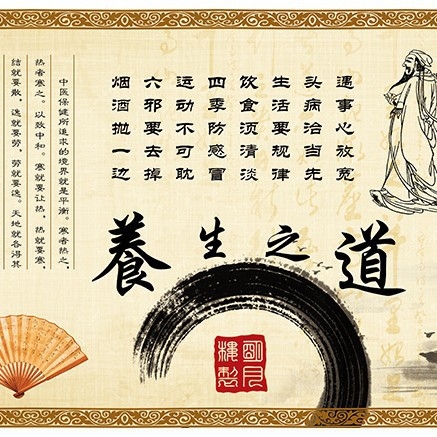 遇事心放宽
头病治当先
生活要规律
饮食须清淡
四季防感冒
运动不可耽
六邪要去掉
烟酒抛一边
中医保健所追求的境界就是平衡。寒者热之，
热者寒之。以致中和。寒就要让热，热就要寒，
结就要散，逸就要劳，劳就要逸。天地就各得其
養生之道
朙月
樓製